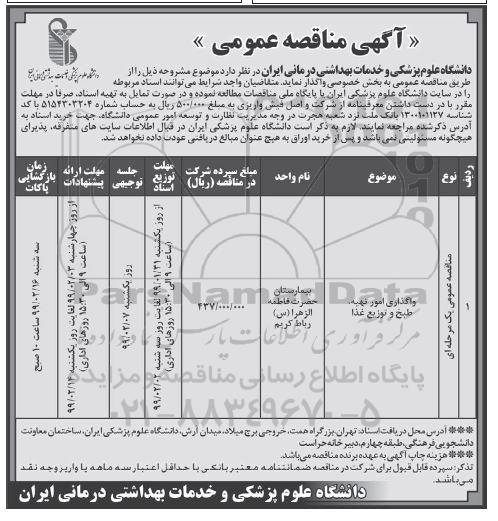 « آگهی مناقصه عمومی »
دانشگاه علوم پزشکی و خدمات بهداشتی درمانی ایران
دانشگاه علوم پزشکی و خدمات بهداشتی درمانی ایران در نظر دارد موضوع مشروحه ذیل را از
طریق مناقصه عمومی به بخش خصوصی واگذار نماید. متقاضیان واجد شرایط می توانند اسناد مربوطه
را در سایت دانشگاه علوم پزشکی ایران یا پایگاه ملی مناقصات مطالعه نموده و در صورت تمایل به تهیه اسناد، صرفاً در مهلت
مقرر با در دست داشتن معرفینامه از شرکت و اصل فیش واریزی به مبلغ ۵۰۰/۰۰۰ ریال به حساب شماره ۵۱۵۴۳۰۳۲۰۴ با کد
شناسه ۱۳۰۰۱۰۱۲۷ بانک ملت نزد شعبه هجرت در وجه مدیریت نظارت و توسعه امور عمومی دانشگاه، جهت خرید اسناد به
آدرس ذکر شده مراجعه نمایند. لازم به ذکر است دانشگاه علوم پزشکی ایران در قبال اطلاعات سایت های متفرقه، پذیرای
هیچگونه مسئولیتی نمی باشد و پس از خرید اوراق به هیچ عنوان مبالغ دریافتی عودت داده نخواهد شد.
ردیف
نوع
موضوع
نام واحد
مبلغ سپرده شرکت
در مناقصه (ریال)
مهلت
توزیع
اسناد
جلسه
توجیهی
مهلت ارائه
پیشنهادات
زمان
بازگشایی
پاکات
مناقصه عمومی یک مرحله ای
واگذاری امور تهیه،
طبخ و توزیع غذا
بیمارستان
حضرت فاطمه
الزهرا (س)
رباط کریم
۴۳۷/۰۰۰/۰۰۰
از روز یکشنبه ۹۹/۰۱/۳۱ لغایت روز سه شنبه ۹۹/۰۲/۰۲
(ساعت ۹ الی ۱۵:۳۰ روزهای اداری)
روز یکشنبه ۹۹/۰۲/۰۷
از روز چهارشنبه ۹۹/۰۲/۰۳ لغایت روز یکشنبه ۹۹/۰۲/۱۴
(ساعت ۹ الی ۱۵:۳۰ روزهای اداری)
سه شنبه ۹۹/۰۲/۱۶ ساعت ۱۰ صبح
ParsNamadData
مرکز فرآوری اطلاعات
پایگاه اطلاع رسانی مناقصه و مزایده
۰۲۱-۸۸۳۴۹۶۷۰-۵
※※※ آدرس محل دریافت اسناد: تهران، بزرگراه همت، خروجی برج میلاد، میدان آرش، دانشگاه علوم پزشکی ایران، ساختمان معاونت
دانشجویی فرهنگی، طبقه چهارم، دبیرخانه حراست
※※※ هزینه چاپ آگهی به عهده برنده مناقصه می باشد.
تذکر: سپرده قابل قبول برای شرکت در مناقصه ضمانتنامه معتبر بانکی با حداقل اعتبار سه ماهه یا واریز وجه نقد
می باشد.
دانشگاه علوم پزشکی و خدمات بهداشتی درمانی ایران